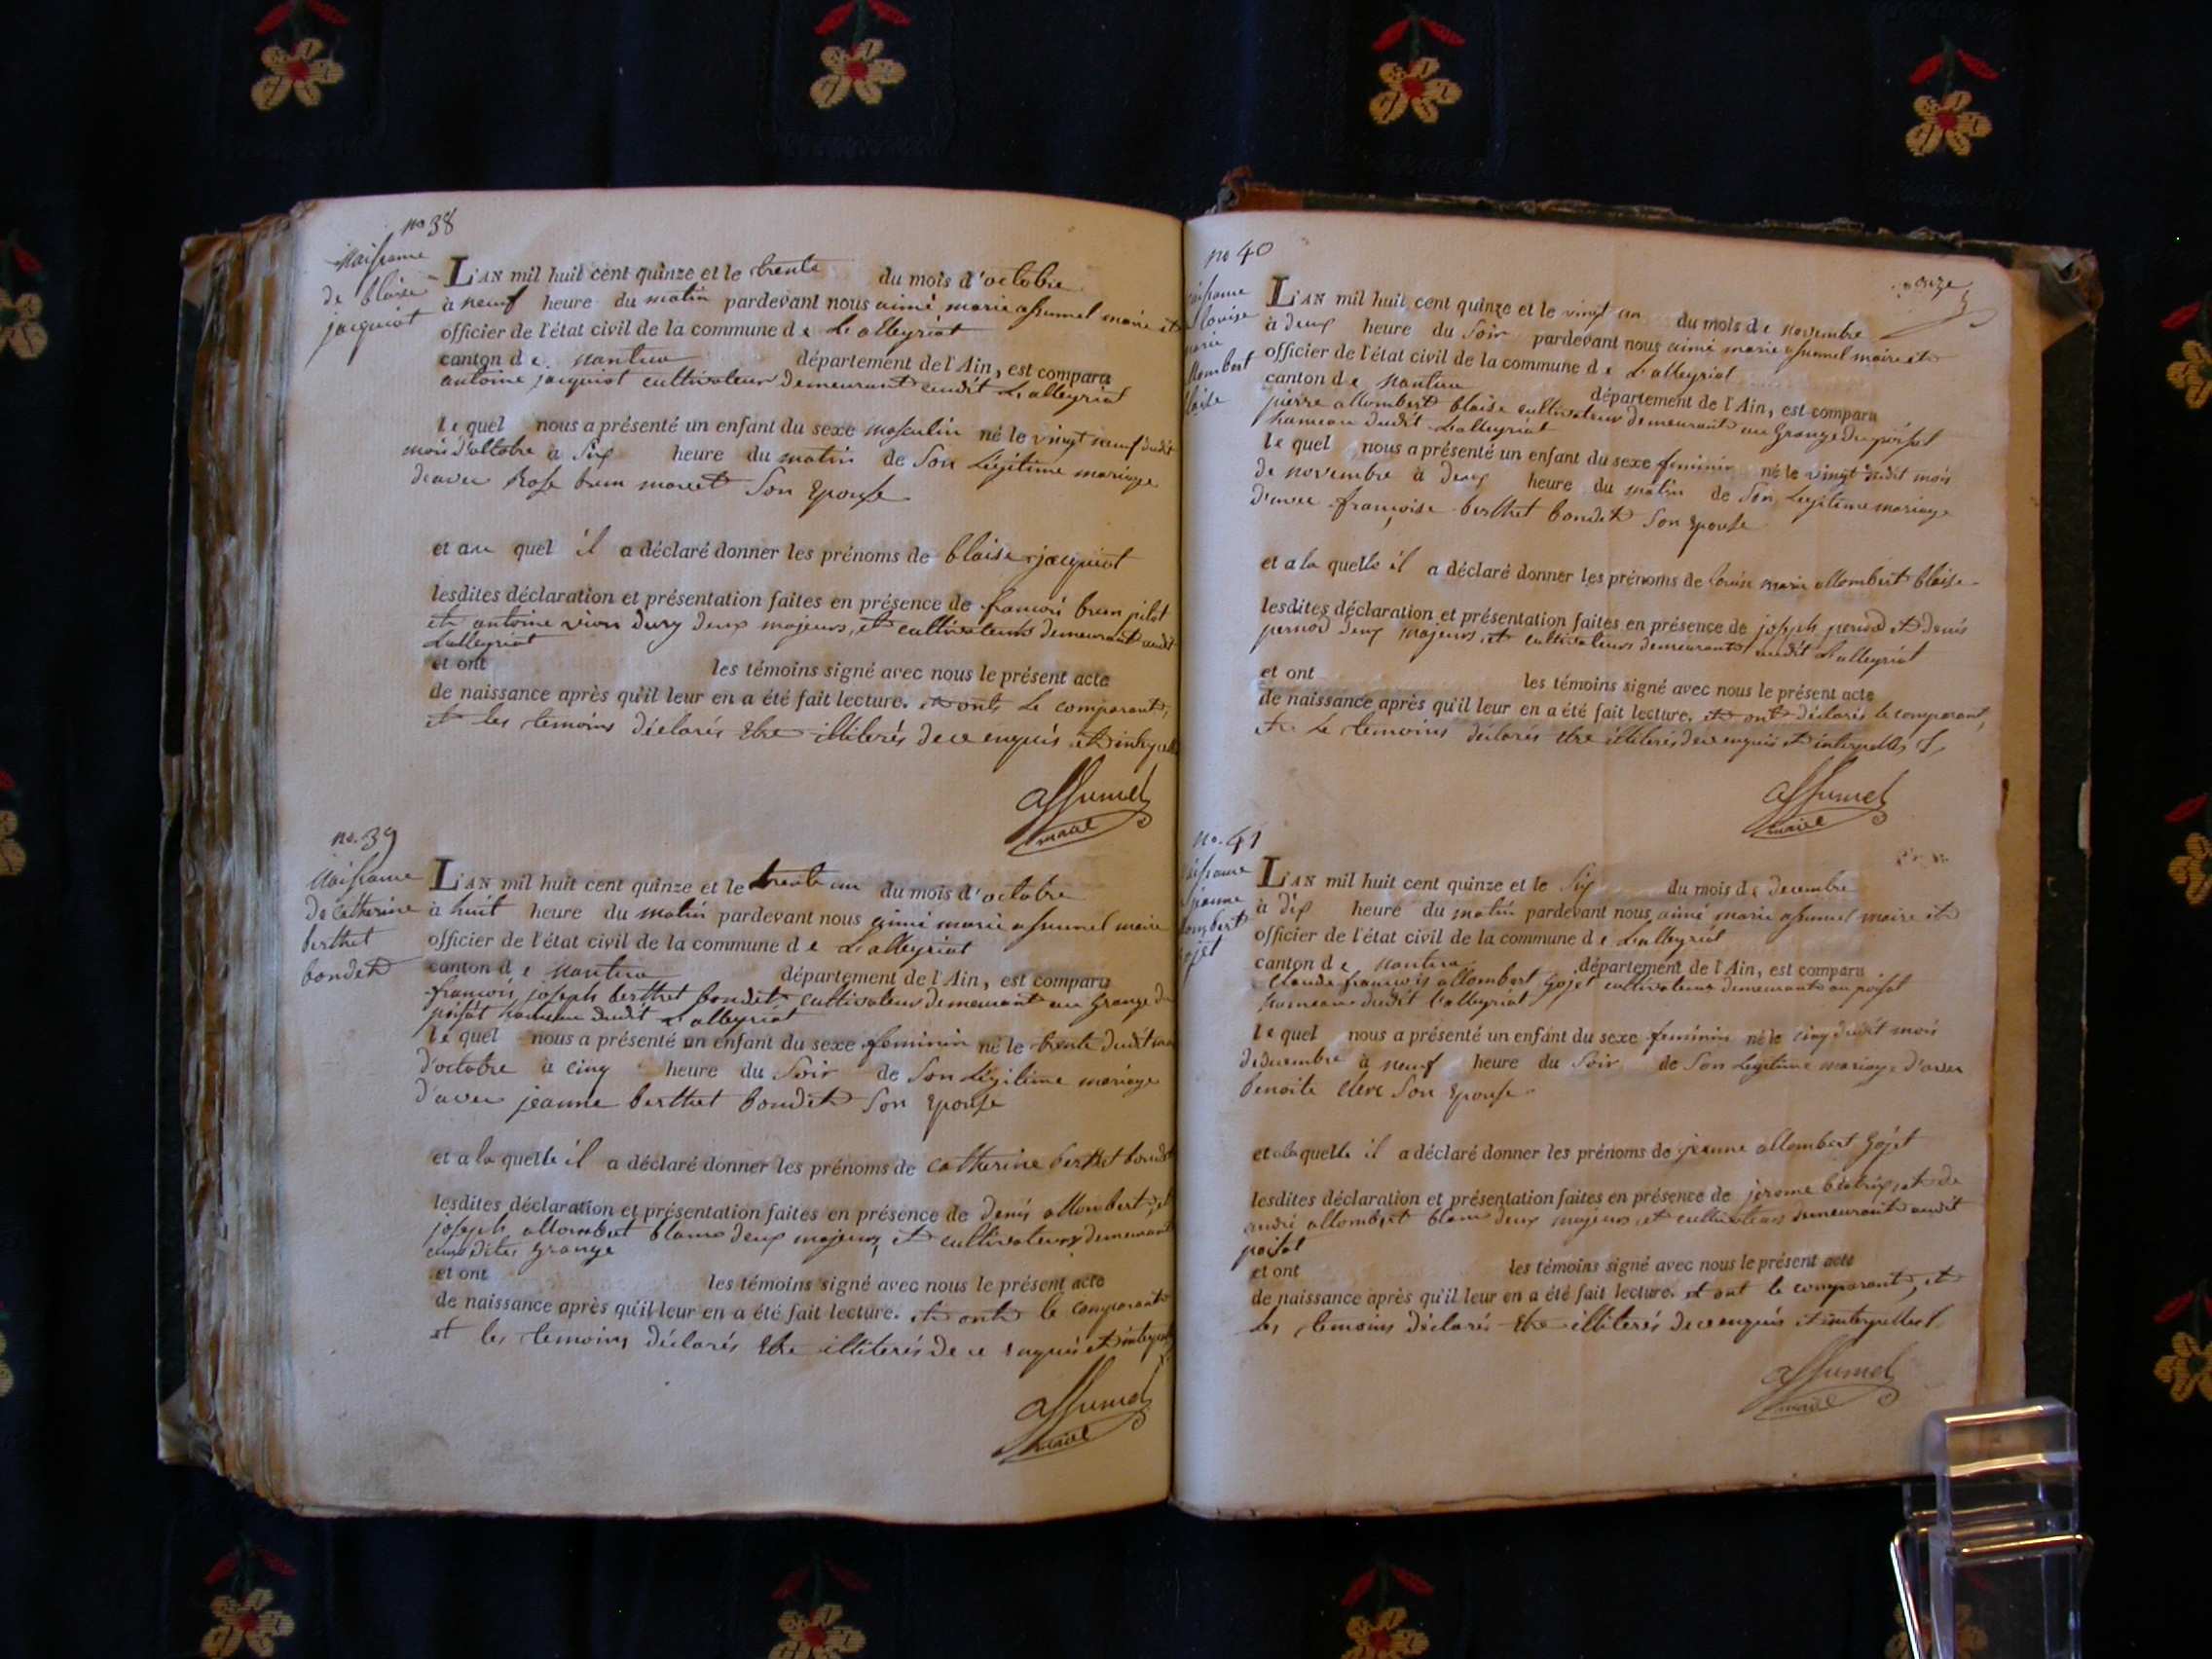 no 38
Naissance
de blaise
jacquiot
L'AN mil huit cent quinze et le trente du mois d'octobre
à neuf heure du matin pardevant nous aimé marie assumel maire et
officier de l'état civil de la commune de Lalleyriat
canton de nantua département de l'Ain, est comparu
antoine jacquiot cultivateur demeurant audit Lalleyriat
lequel nous a présenté un enfant du sexe masculin né le vingt neuf dudit
mois d'octobre à six heure du matin de son légitime mariage
d'avec Rose brun son Epouse
et au quel il a déclaré donner les prénoms de blaise jacquiot
lesdites déclaration et présentation faites en présence de francois brun pilot
et antoine vion dury deux majeurs, et cultivateurs demeurant audit
Lalleyriat
et ont les témoins signé avec nous le présent acte
de naissance après qu'il leur en a été fait lecture. et ont le comparant,
et les temoins déclarés Etre illiterés de ce enquis et
assumel
maire
no. 39
Naissance
de catherine
berthet
bondet
L'AN mil huit cent quinze et le trente un du mois d'octobre
à huit heure du matin pardevant nous aimé marie assumel maire
officier de l'état civil de la commune de Lalleyriat
canton de nantua département de l'Ain, est comparu
francois joseph berthet bondet cultivateur demeurant au Grange du
poisat hameau dudit Lalleyriat
lequel nous a présenté un enfant du sexe feminin né le trente dudit mois
d'octobre à cinq heure du soir de son légitime mariage
d'avec jeanne berthet bondet son Epouse
et a la quelle il a déclaré donner les prénoms de catherine berthet bondet
lesdites déclaration et présentation faites en présence de denis allombert, et
joseph allombert blanc deux majeurs, et cultivateurs demeurant
Grange
et ont les témoins signé avec nous le présent acte
de naissance après qu'il leur en a été fait lecture. et ont le comparant
et les temoins déclarés Etre illiterés de ce enquis et
assumel
maire
no 40
louise
marie
L'AN mil huit cent quinze et le vingt un du mois de novembre
à deux heure du soir pardevant nous aimé marie assumel maire et
officier de l'état civil de la commune de Lalleyriat
canton de nantua département de l'Ain, est comparu
pierre allombert blaise cultivateur demeurant au Grange du poisat
hameau dudit Lalleyriat
lequel nous a présenté un enfant du sexe feminin né le vingt dudit mois
de novembre à deux heure du matin de son légitime mariage
d'avec françoise berthet bondet son Epouse
et a la quelle il a déclaré donner les prénoms de louise marie allombert blaise
lesdites déclaration et présentation faites en présence de joseph pernod et denis
pernod deux majeurs, et cultivateurs demeurant audit Lalleyriat
et ont les témoins signé avec nous le présent acte
de naissance après qu'il leur en a été fait lecture. et ont déclarés le comparant,
et le temoins déclarés etre illiterés de ce enquis et interpellés
assumel
maire
no. 41
jeanne
L'AN mil huit cent quinze et le six du mois de decembre
à dix heure du matin pardevant nous aimé marie assumel maire et
officier de l'état civil de la commune de Lalleyriat
canton de nantua département de l'Ain, est comparu
Claude francois allombert Gojet cultivateur demeurant au poisat
hameau dudit Lalleyriat
lequel nous a présenté un enfant du sexe feminin né le cinq dudit mois
de decembre à neuf heure du soir de son légitime mariage d'avec
benoite clerc son Epouse
et a la quelle il a déclaré donner les prénoms de jeanne allombert Gojet
lesdites déclaration et présentation faites en présence de jerome et de
andré allombert blanc deux majeurs, et cultivateurs demeurant audit
poisat
et ont les témoins signé avec nous le présent acte
de naissance après qu'il leur en a été fait lecture. et ont le comparant, et
les temoins déclarés Etre illiterés de ce enquis et interpellés
assumel
maire